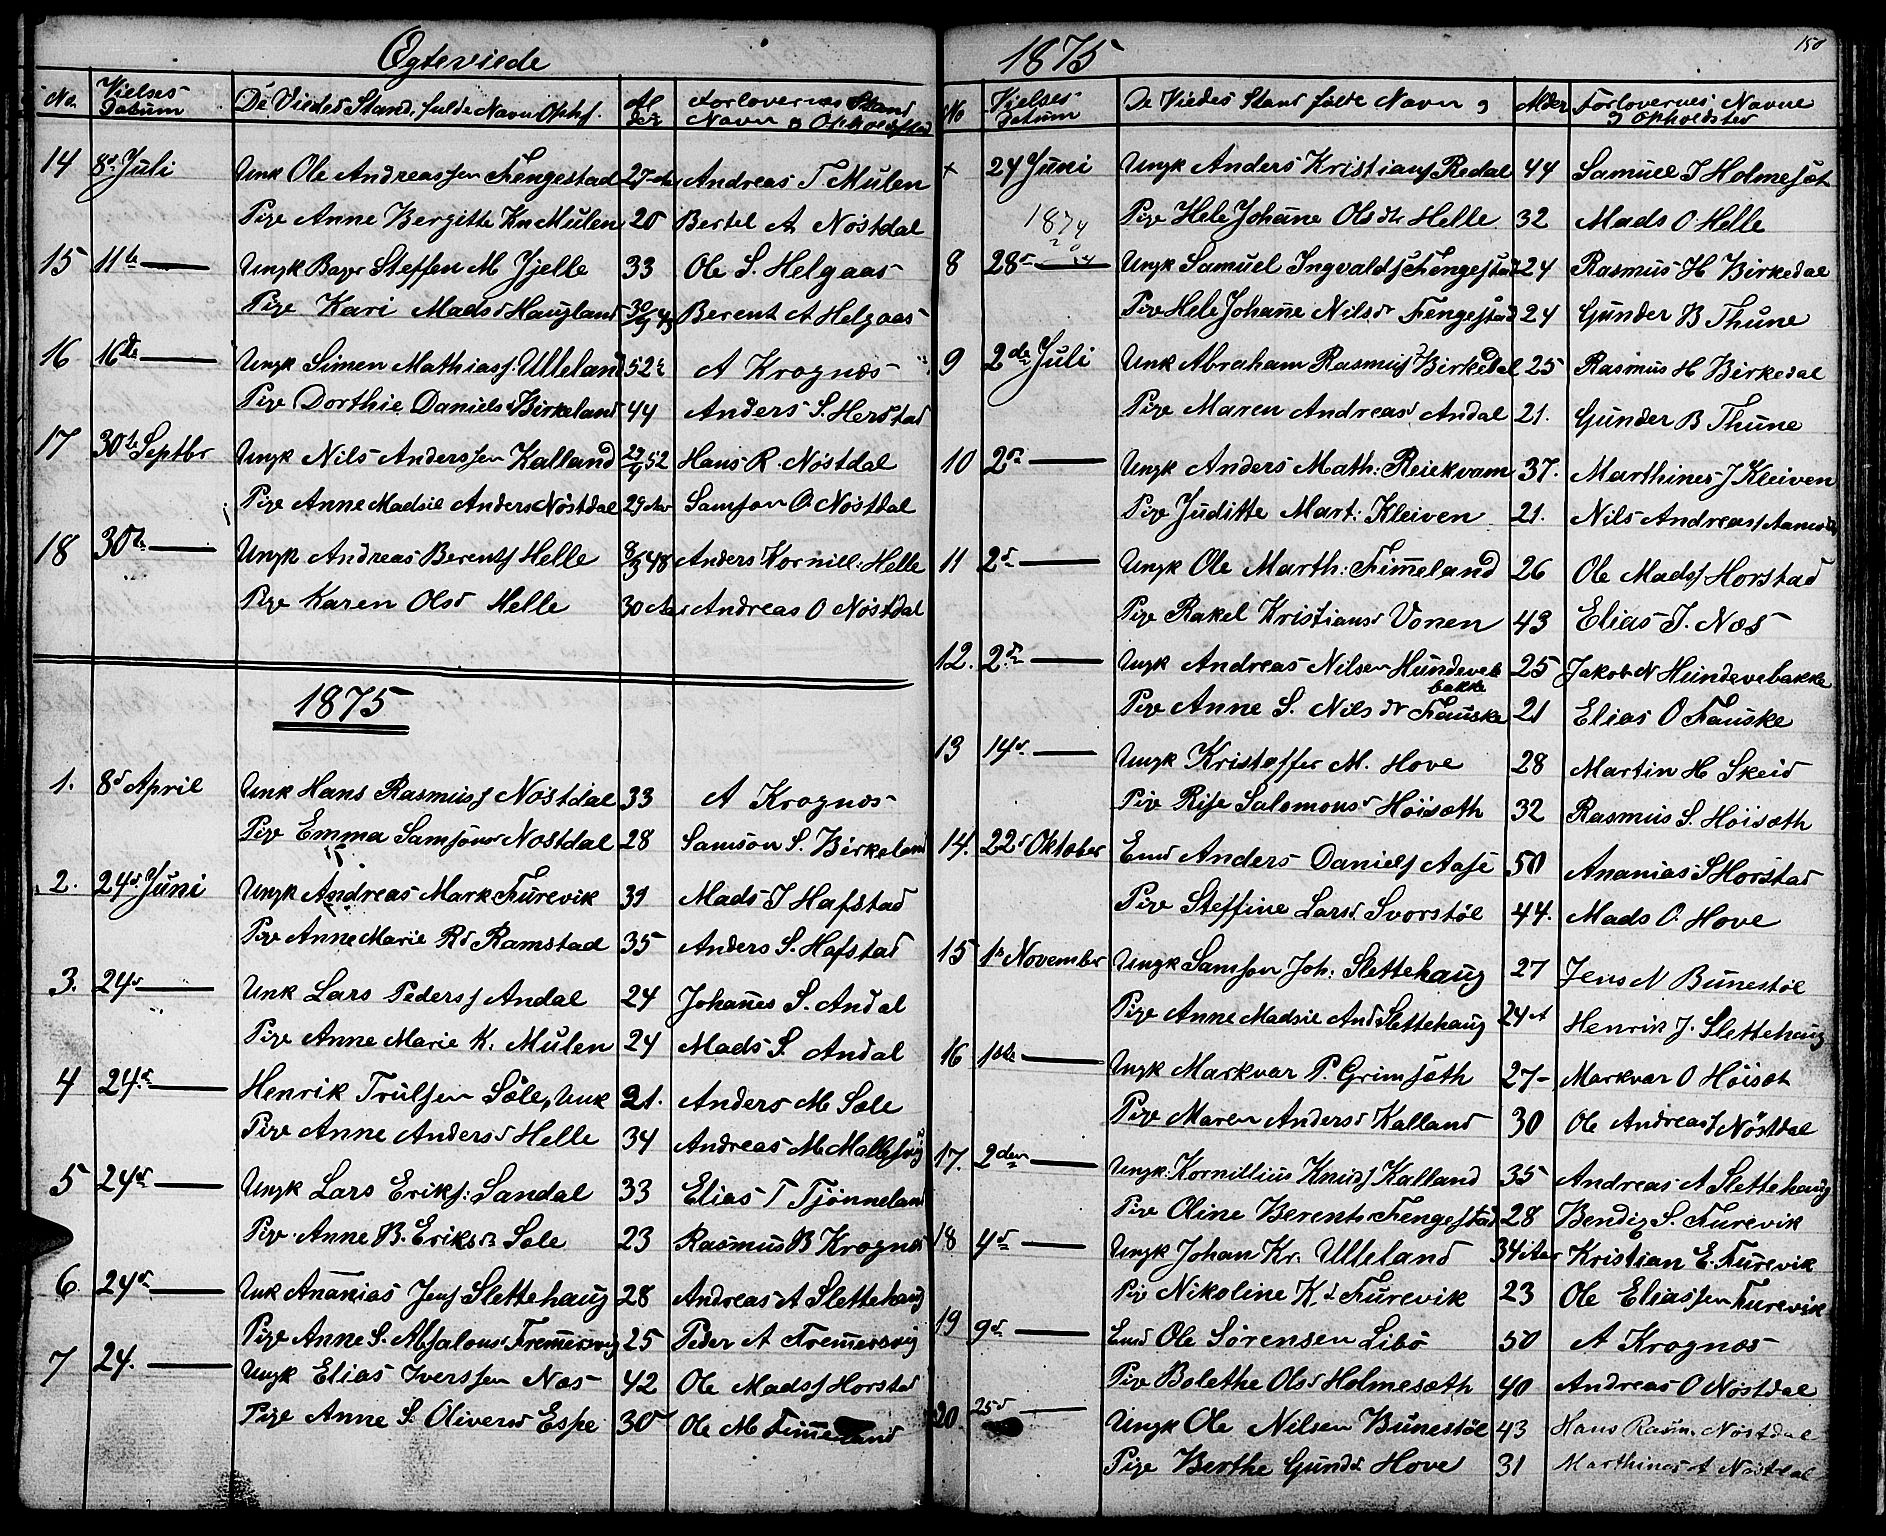 Ægteviede
No. Vielses Datum De Viedes Stand, fulde Navn Opht. Alder Forlovernes Stand Navn & Opholdsstad
14 8de Juli Unk Ole Andreassen Fengestad 27 Andreas T. Mulen
Pige Anne Bergitte Kn Mulen 20 Bertel A Nöstdal
15 11te — Ungk Steffen M Jjelle 33 Ole S. Helgaas
Pige Kari Madsd Haugland Berent A Helgaas
16 16de — Ungk Simen Mathiass. Ulleland 52 A Krognæs
Pige Dorthie Danielsd Birkeland 44 Anders S. Herstad
17 30te Septbr Ungk Nils Anderssen Kalland 52 Hans R. Nöstdal
Pige Anne Madsie Andersd Nöstdal 29 Samson O Nöstdal
18 30te — Ungk Andreas Berents Helle 8/3 48 Anders Kornill: Helle
Pige Karen Olsd Helle 30 Andreas O Nöstdal
1875
1. 8d April Unk Hans Rasmuss Nöstdal 33 A Krognæs
Pige Emma Samsonsd Nostdal 28 Samson S. Birkeland
2. 24d Juni Ungk Andreas Mark Furevik 39 Mads J Hafstad
Pige Anne Marie Rd Ramstad 35 Anders S. Hafstad
3. 24d — Unk Lars Peders Andal 24 Johanes S. Andal
Pige Anne Marie K. Mulen 24 Mads S. Andal
4 24d — Henrik Trulsen Söle, Unk 21. Anders M Sæle
Pige Anne Andersd Helle 34 Andreas M Mallesvig
5 24d — Ungk Lars Eriks: Sandal 33 Elias T Tjönneland
Pige Anne B. Eriksdr Sole 23 Rasmus B Krognæs
6 24d — Unk Ananias Jens Slettehaug 28 Andreas A Slettehaug
Pige Anne S. Absalonsd Fremersvig 25 Peder A Fremersvig
7 24. — Ungk Elias Iverssen Næs 42 Ole Madss Horstad
Pige Anne S. Oliversd Espe 30 Ole M Fimeland
1875
150
No Vielses Datum De Viedes Stand fulde Navn og Alder Forlovernes Navne og Opholdsted
x 24 Juni Ungk Anders Kristians Redal 44 Samuel J Holmesöt
1874 Pige Hele Johane Olsdr Helle 32 Mads O Helle
8 28d — Ungk Samuel Ingvalds Fengestad 24 Rasmus H Birkedal
Pige Hele Johane Nilsdr Fengestad 24 Gunder B Thune
9 2den Juli Unk Abraham Rasmuss Birkedal 25 Rasmus H Birkedal
Pige Maren Andreasd Andal 21. Gunder B Thune
10 2d — Ungk Anders Math: Reiekvam 37. Marthines J Kleiven
Pige Juditte Mart: Kleiven 21. Nils Andreass
11 2d — Ungk Ole Marth: Fimeland 26 Ole Madss Horstad
Pige Rakel Kristiansd Vonen 43 Elias J. Næs
12. 2d — Ungk Andreas Nilsen Hundevebakke 25 Jakob N Hundevebakke
Pige Anne S. Nilsdr Fauske 21 Elias O Fauske
13 14d — Ungk Kristoffer M. Hove 28 Martin H Skeid
Pige Rise Salomonsd Höisæth 32 Rasmus S. Höisæth
14. 22d Oktober Emd Anders Daniels Aase 50 Ananias S Horstad
Pige Steffine Larsd Svorstöl 44. Mads O. Hove
15 1te November Ungk Samson Joh: Slettehaug 27 Jens N Bunestöl
Pige Anne Madsie And Slettehaug 24 A Henrik J. Slettehaug
16 1ste — Ungk Markvar P. Grimsöth 27 Markvar O Höisæt
Pige Maren Andersd Kalland 30 Ole Andreass Nöstdal
17. 2den — Ungk: Kornillius Knuds Kalland 35 Andreas A Slettehaug
Pige Oline Berents Fengestad 28 Bendig S. Furevik
18 4d — Ungk Johan Kr. Ulleland 34 Kristian E. Furevik
Pige Nikoline K.d Furevik 23 Ole Eliassen Furevik
19 9d — Emd Ole Sörensen Libö 50 A Krognæs
Pige Bolethe Olsd Holmesæth 40 Andreas O Nöstdal
20. 25d — Ungk Ole Nilsen Bunestöl 43 Hans Rasm. Nöstdal
Pige Berthe Gundd Hove 31 Marthines A Nöstdal